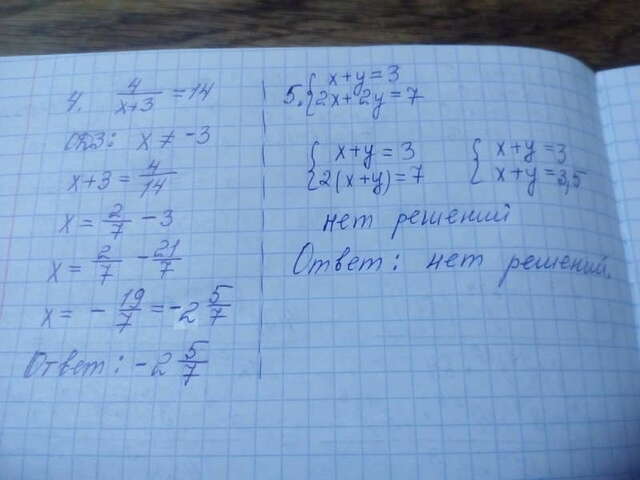 4. 4/(x+3) = 14
ОДЗ: x ≠ -3
x+3 = 4/14
x = 2/7 - 3
x = 2/7 - 21/7
x = - 19/7 = -2 5/7
Ответ: -2 5/7
5. { x+y=3
{ 2x+2y=7
{ x+y=3
{ 2(x+y)=7
{ x+y=3
{ x+y=3,5
нет решений
Ответ: нет решений.